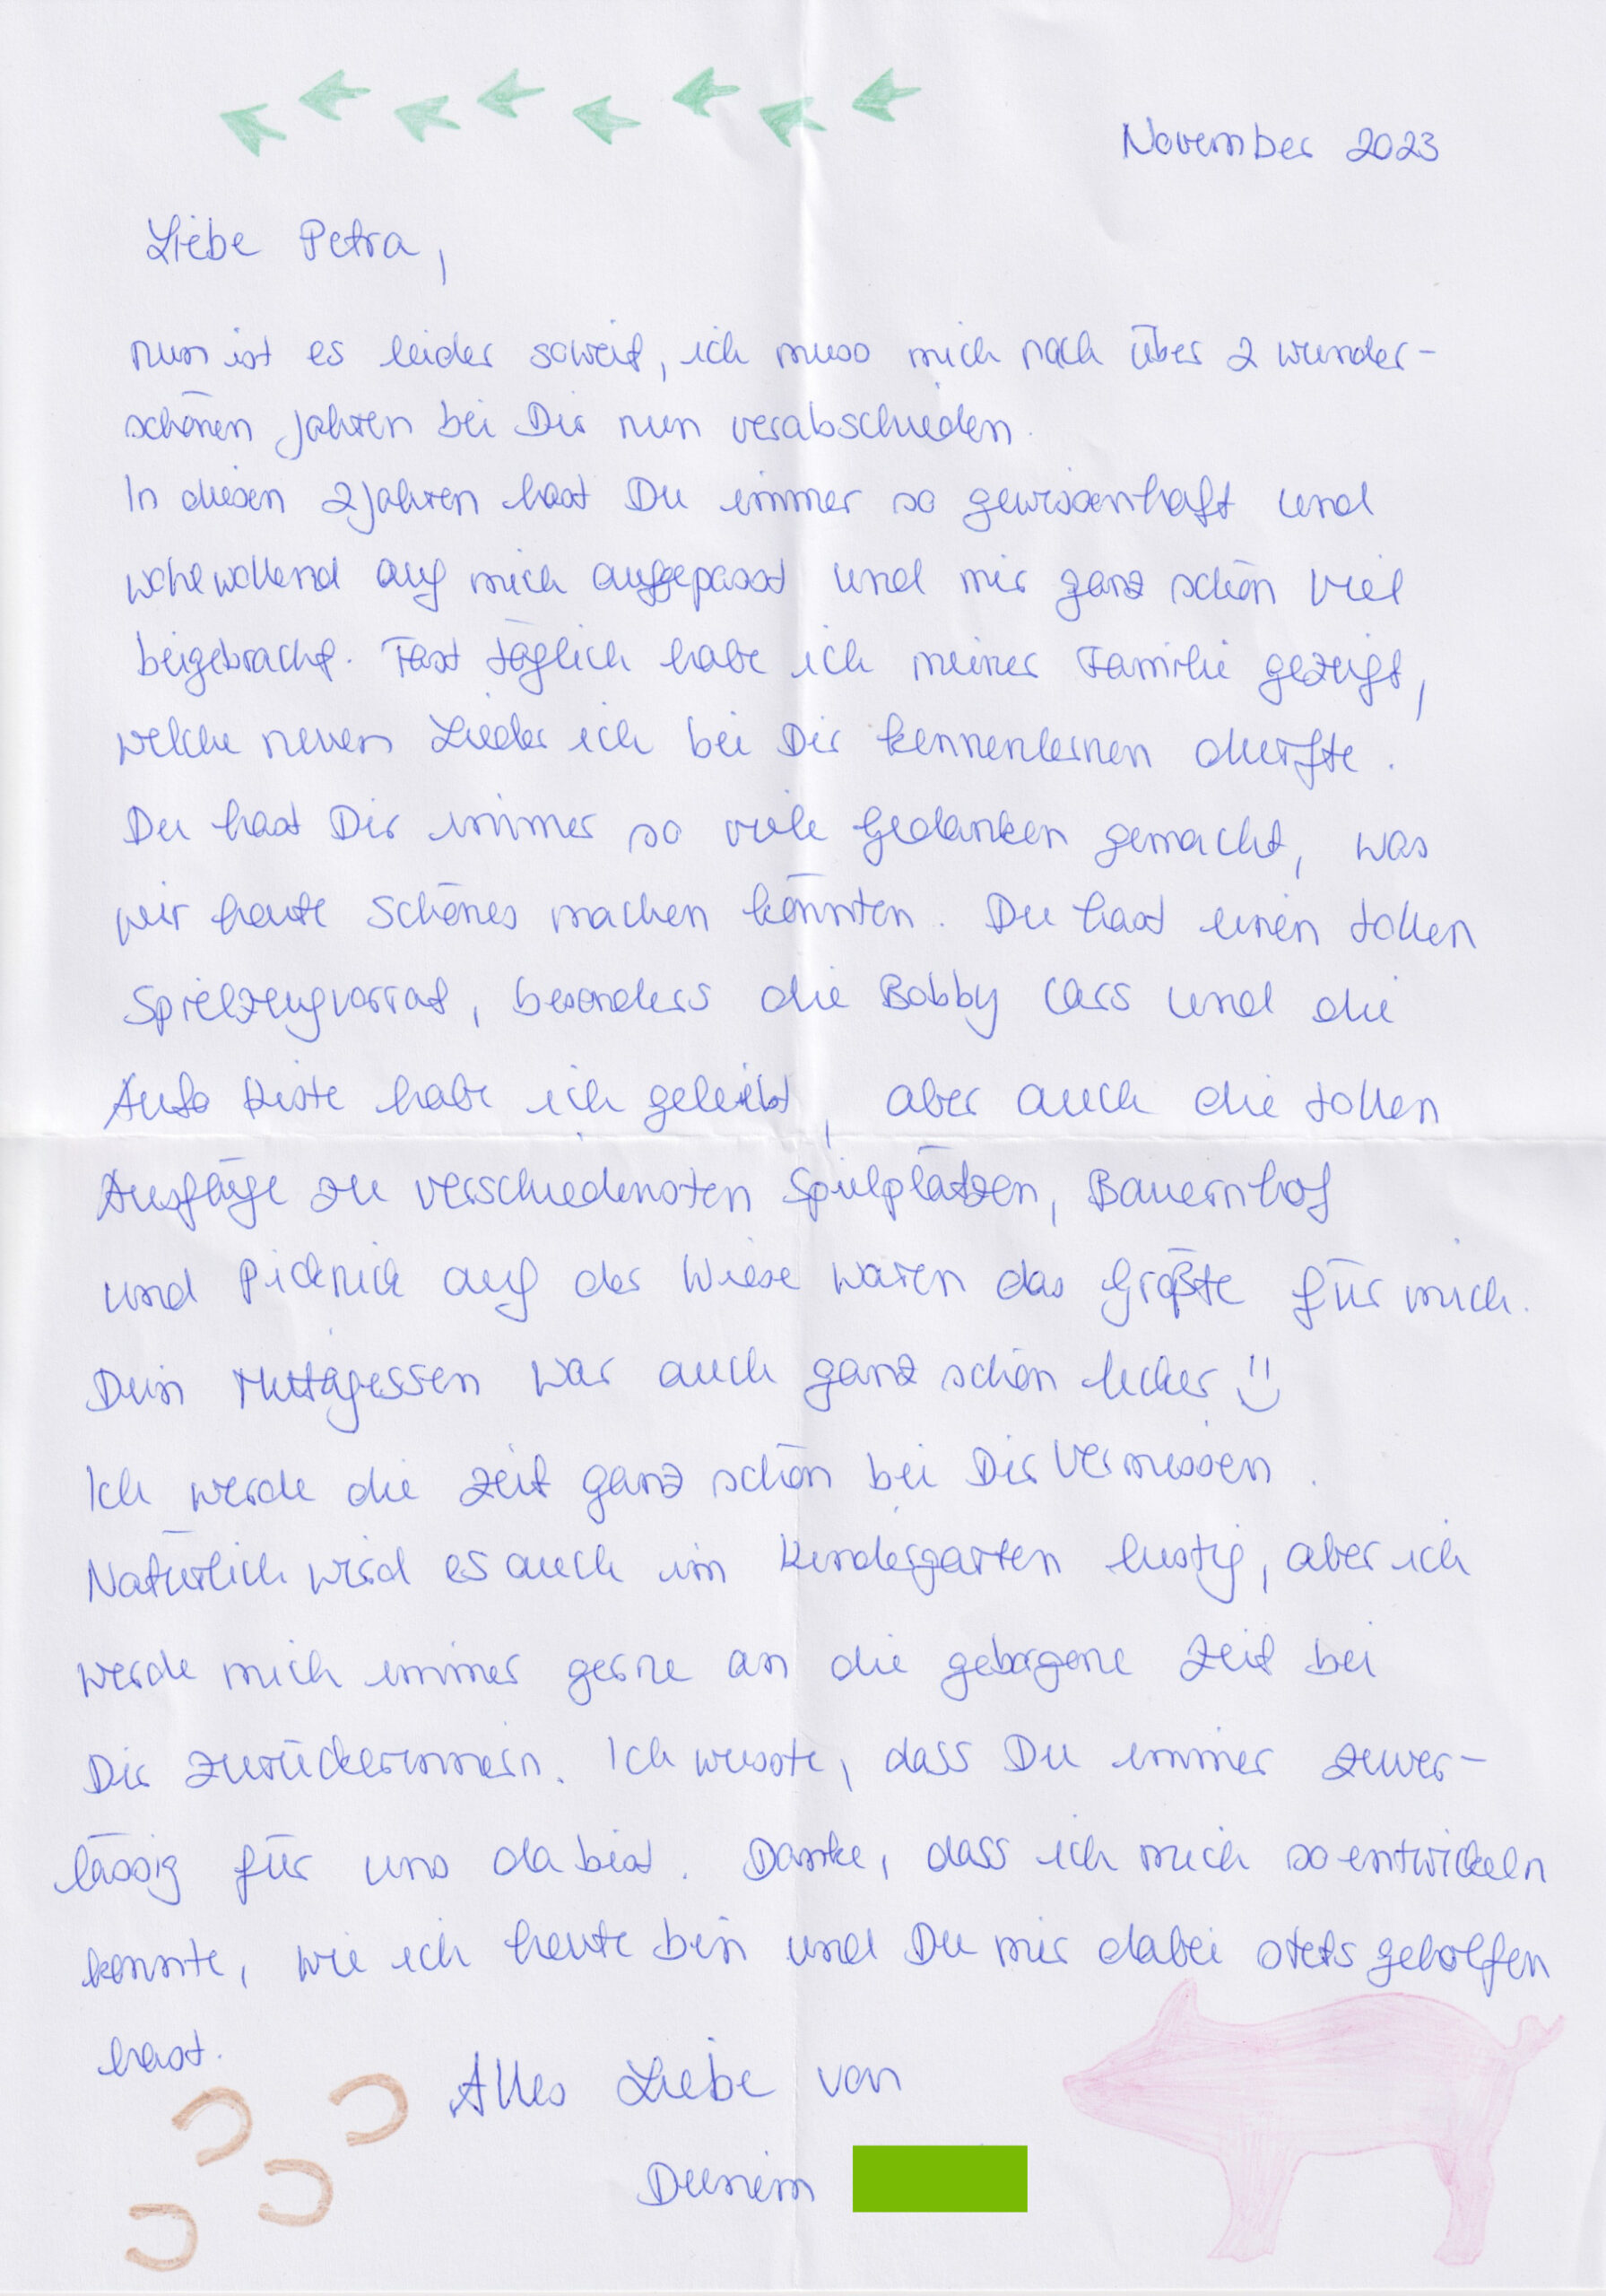 November 2023
Liebe Petra,
nun ist es leider soweit, ich muss mich nach über 2 wunder-
schönen Jahren bei Dir nun verabschieden.
In diesen 2 Jahren hast Du immer so gewissenhaft und
wohlwollend auf mich aufgepasst und mir ganz schön viel
beigebracht. Fast täglich habe ich meiner Familie gezeigt,
welche neuen Lieder ich bei Dir kennenlernen durfte.
Du hast Dir immer so viele Gedanken gemacht, was
wir heute Schönes machen könnten. Du hast einen tollen
Spielzeugvorrat, besonders die Bobby Cars und die
Auto Kiste habe ich geliebt, aber auch die tollen
Ausflüge zu verschiedensten Spielplätzen, Bauernhof
und Picknick auf der Wiese waren das Größte für mich.
Dein Mittagessen war auch ganz schön lecker
Ich werde die Zeit ganz schön bei Dir vermissen.
Natürlich wird es auch im Kindergarten lustig, aber ich
werde mich immer gerne an die geborgene Zeit bei
Dir zurückerinnern. Ich wusste, dass Du immer zuver-
lässig für uns da bist. Danke, dass ich mich so entwickeln
konnte, wie ich heute bin und Du mir dabei stets geholfen
hast.
Alles Liebe von
Deinem